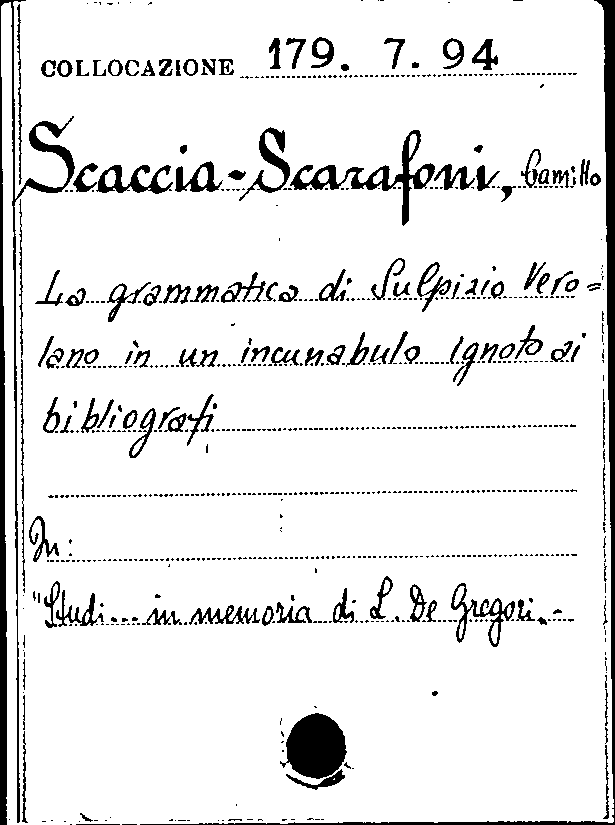 COLLOCAZIONE 179. 7. 94
Scaccia-Scarafoni, Camillo
La grammatica di Sulpizio Vero=
lano in un incunabulo ignoto ai
bibliografi
In:
"Studi... in memoria di L. De Gregori.-